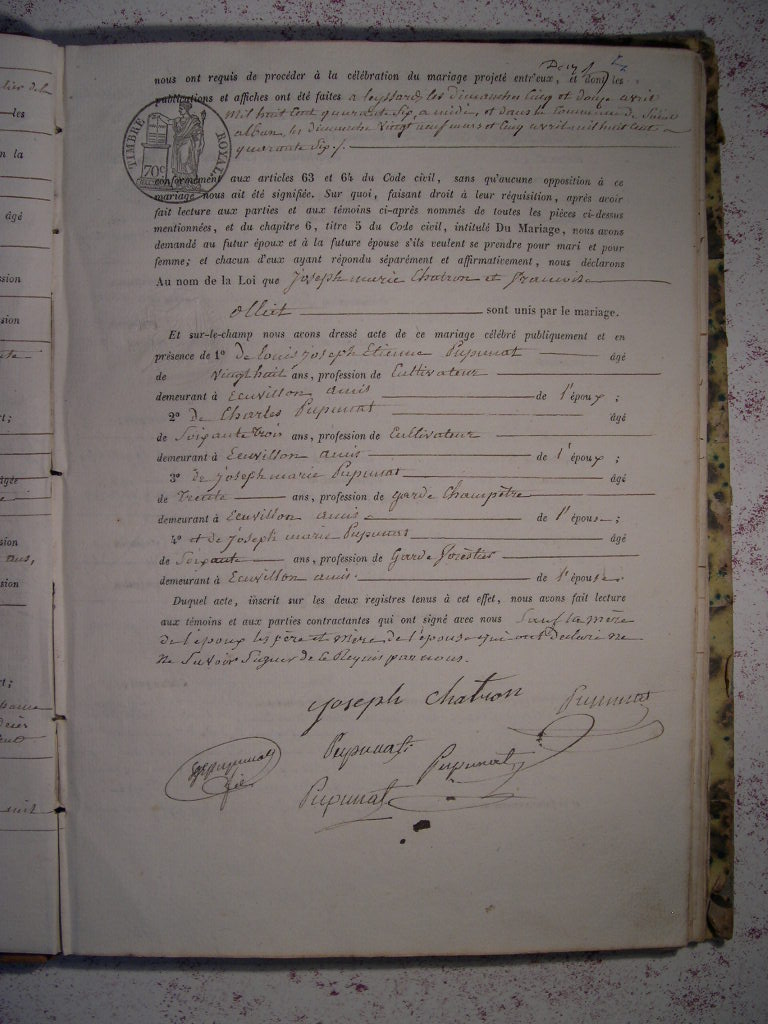 nous ont requis de procéder à la célébration du mariage projeté entr'eux, et dont les
publications et affiches ont été faites a leyssard, les dimanches cinq et douze avril
mil huit cent quarante six, a midi, et dans la commune de Saint
alban, les dimanche vingt neuf mars et cinq avril mil huit cent
quarante six /.
TIMBRE ROYAL
70c
conformément aux articles 63 et 64 du Code civil, sans qu'aucune opposition à ce
mariage nous ait été signifiée. Sur quoi, faisant droit à leur réquisition, après avoir
fait lecture aux parties et aux témoins ci-après nommés de toutes les pièces ci-dessus
mentionnées, et du chapitre 6, titre 5 du Code civil, intitulé Du Mariage, nous avons
demandé au futur époux et à la future épouse s'ils veulent se prendre pour mari et pour
femme; et chacun d'eux ayant répondu séparément et affirmativement, nous déclarons
Au nom de la Loi que Joseph marie Chatron et françoise
olliet sont unis par le mariage.
Et sur-le-champ nous avons dressé acte de ce mariage célébré publiquement et en
présence de 1° de louis joseph Etienne Pupunat âgé
de vingt huit ans, profession de Cultivateur
demeurant à Ecuvillon amis de l'époux ;
2° de Charles Pupunat âgé
de Soixante trois ans, profession de Cultivateur
demeurant à Ecuvillon amis de l'époux ;
3° de joseph marie Pupunat âgé
de trente ans, profession de garde Champêtre
demeurant à Ecuvillon amis de l'épouse ;
4° et de joseph marie Pupunat âgé
de Soixante ans, profession de Garde forestier
demeurant à Ecuvillon amis. de l'épouse.
Duquel acte, inscrit sur les deux registres tenus à cet effet, nous avons fait lecture
aux témoins et aux parties contractantes qui ont signé avec nous Sauf la mère
de l'époux les père et mère de l'épouse qui ont déclaré ne
ne Savoir Signer de ce Requis par nous.
joseph chatron Pupunat
Pupunat
Pupunat
Pupunat